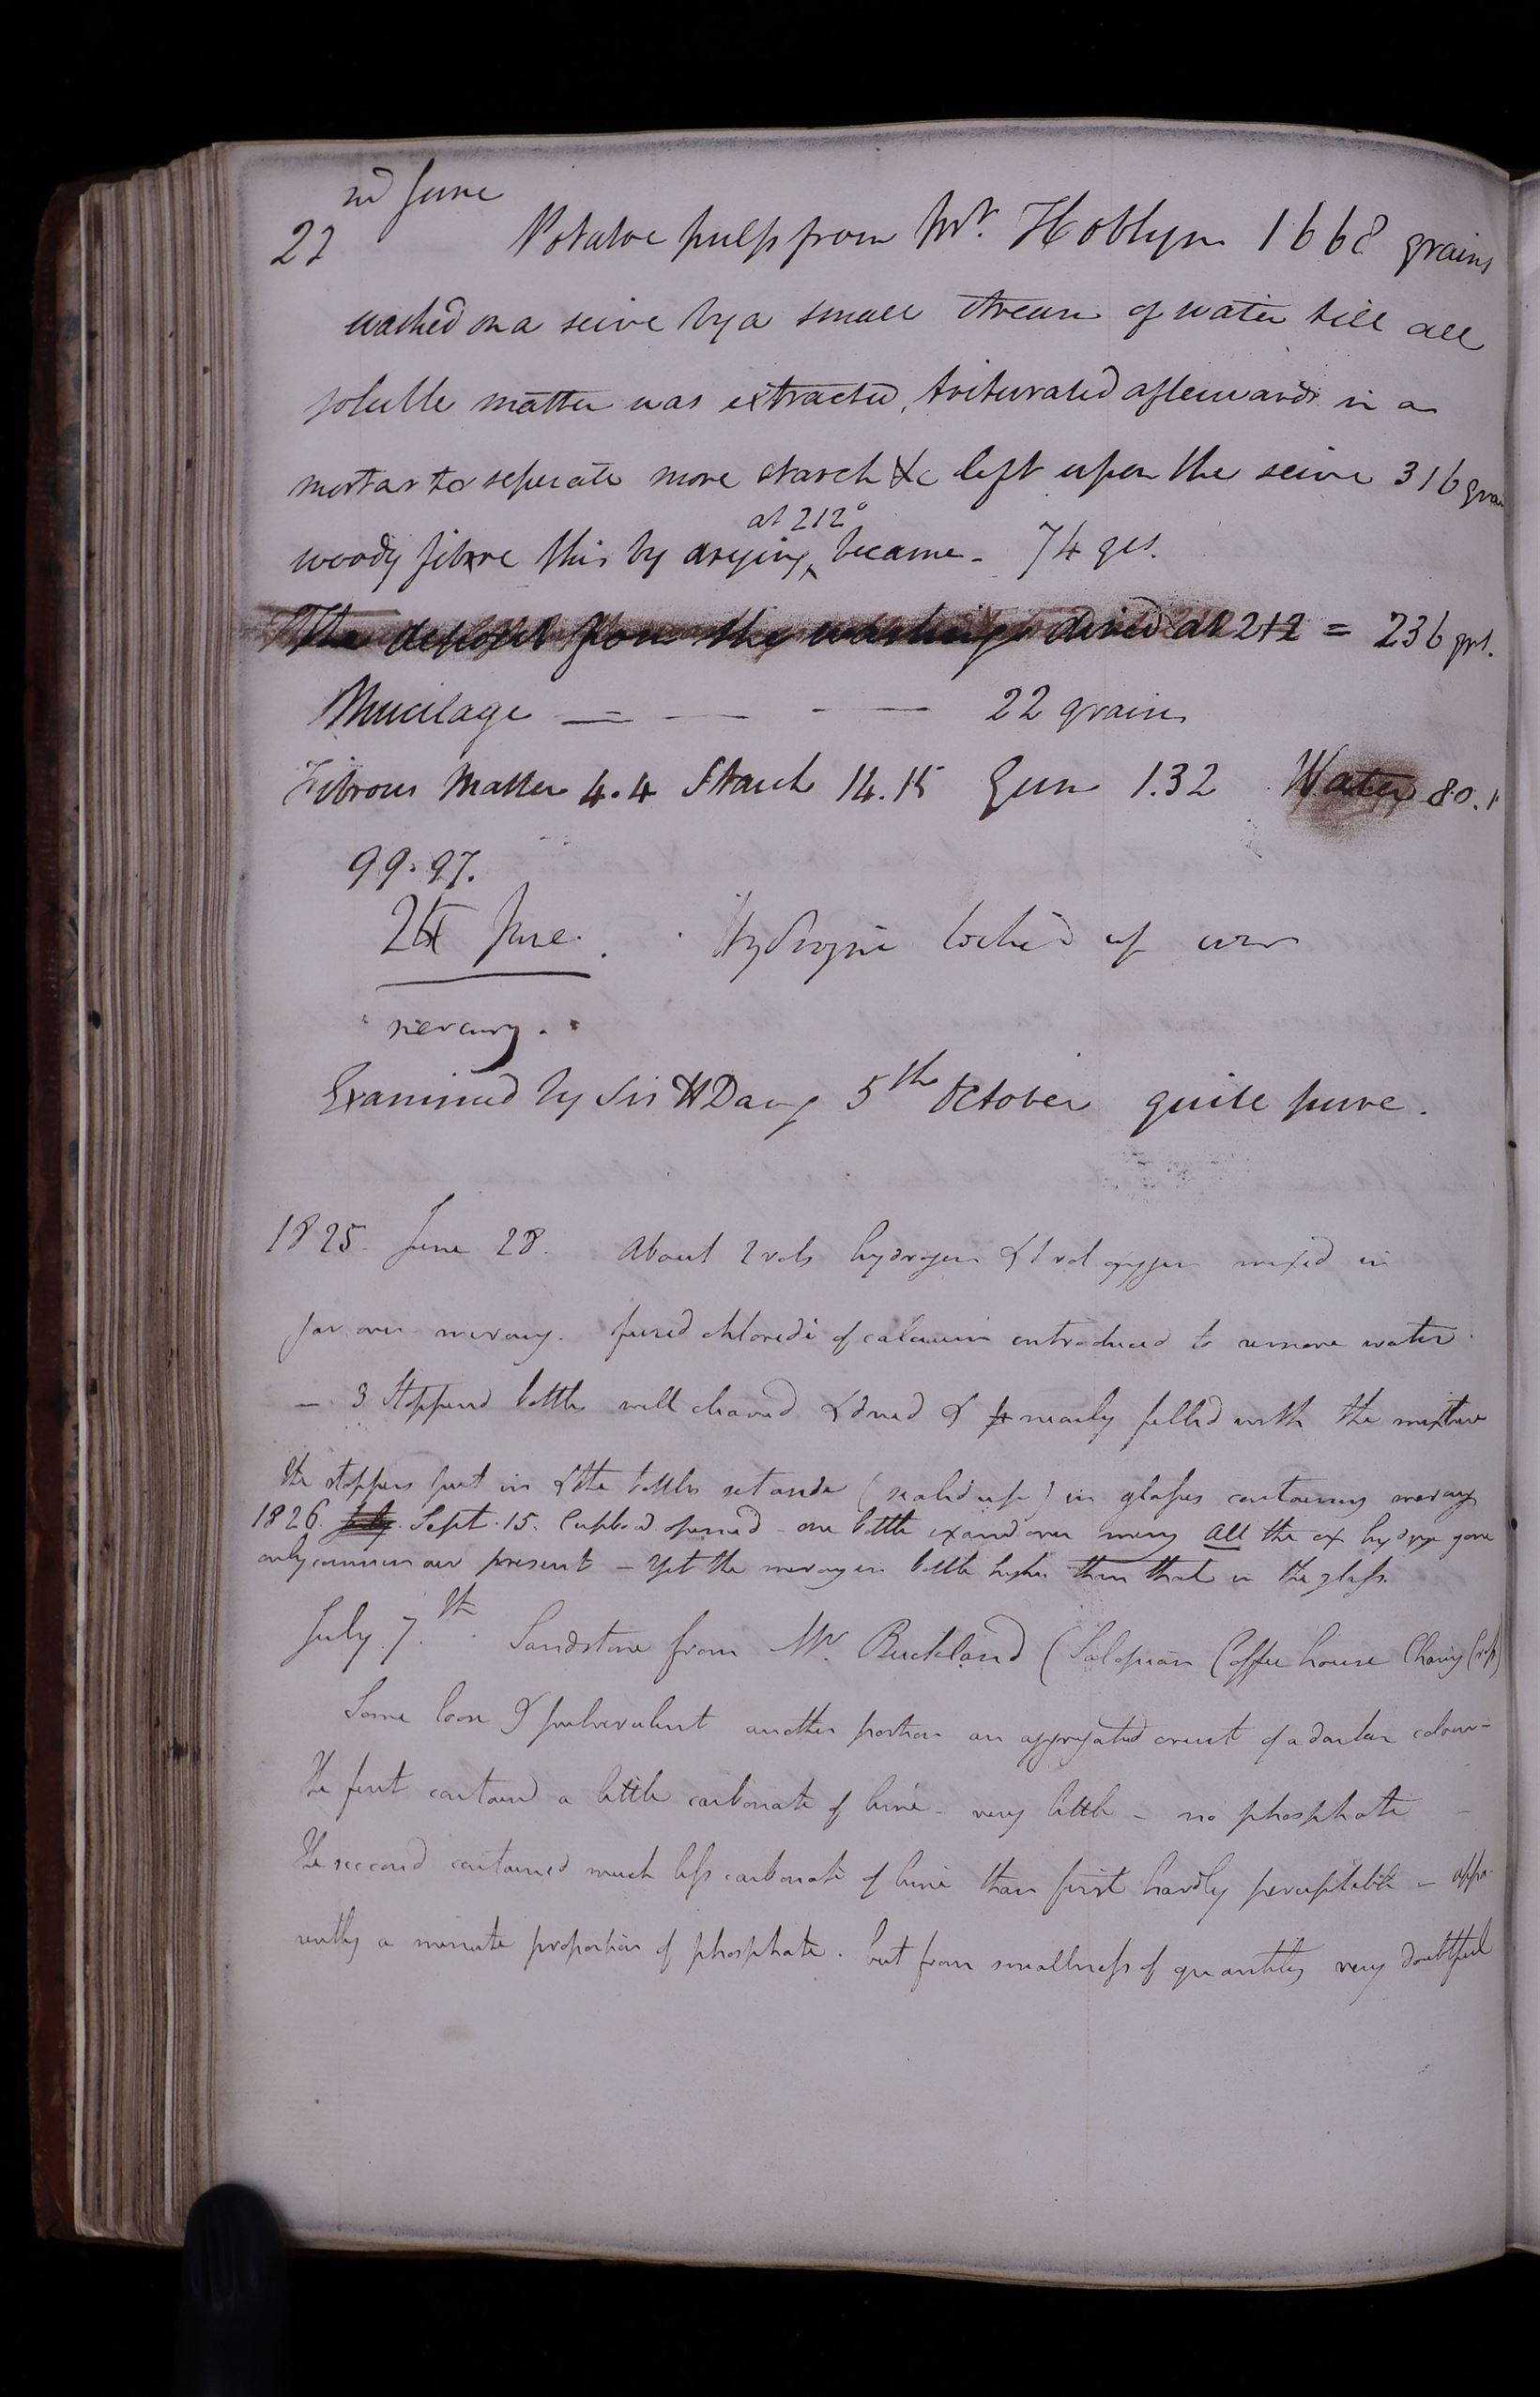 22nd June Potatoe pulp from Mr. Hoblyn 1668 grains
washed on a seive by a small stream of water till all
soluble matter was extracted, triturated afterwards in a
mortar to seperate more starch &c left upon the seive 316 grai
woody fibre this by drying at 212° became - 74 grs.
The deposit from the washings dried at 212 = 236 grs.
Mucilage = — — 22 grains
Fibrous Matter 4.4 Starch 14.15 Gum 1.32 Water 80.1
99.97.
June. Hydrogene locked up over
mercury.
Examined by Sir H Davy 5th October quite pure.
1825 June 28. About 2 vols hydrogen & 1 vol oxygen mixed in
jar over mercury. fused chloride of calcium introduced to remove water
— 3 Stoppered bottles well cleaned & dried & nearly filled with the mixture
the stoppers put in & the bottles set aside (sealed up) in glasses containing mercury
1826. July. Sept. 15. Cupboard opened - one bottle examd over mercy All the ox hydrogn gone
only common air present - Yet the mercury in bottle higher than that in the glass.
July 7.th Sandstone from Mr. Buckland (Salopian Coffee house Charing Cross)
Some loose & pulverulent another portion an aggregated crust of a darker colour -
The first contained a little carbonate of lime - very little - no phosphate -
The second contained much less carbonate of lime than first hardly perceptible - appa
rently a minute proportion of phosphate. but from smallness of quantity very doubtful